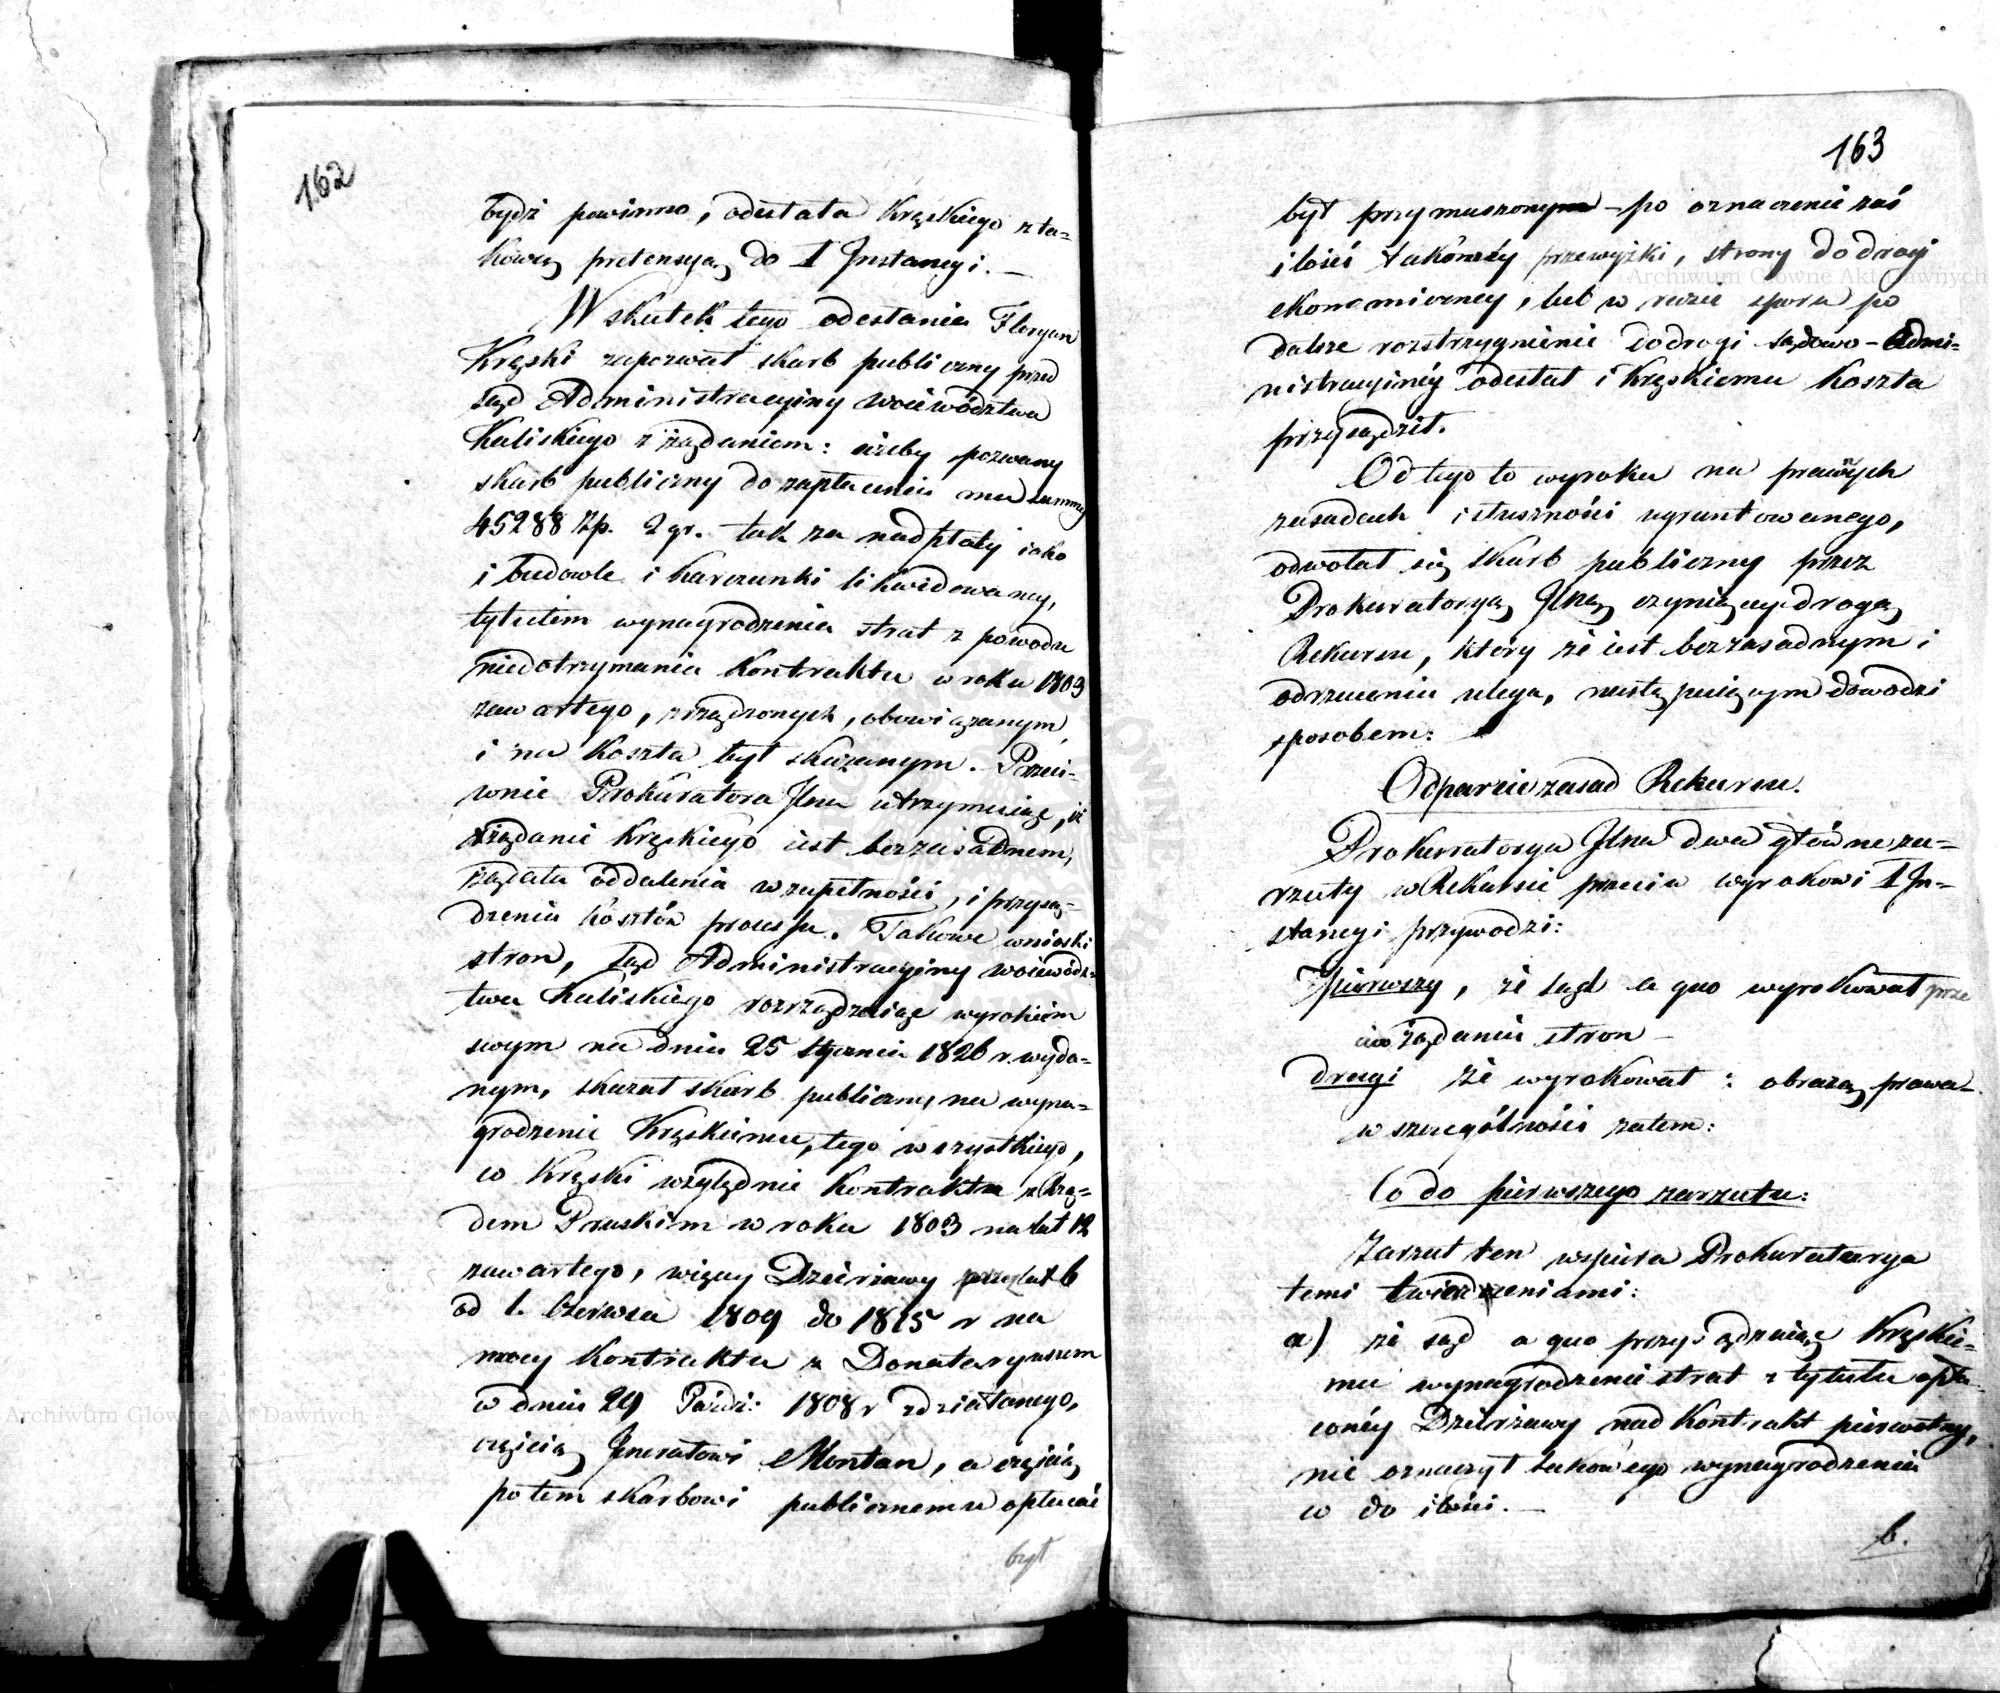 162
bydź powinno, odesłała Kręskiego z ta=
kową pretensyą do I Instancyi. —
W skutek tego odesłania Floryan
Kręski zapozwał skarb publiczny przed
sąd Administracyiny Woiewództwa
Kaliskiego z żądaniem: ażeby pozwany
skarb publiczny do zapłacenia mu summy
45288 Złp. 2 gr. tak za nadpłaty iako
i budowle i karczunki likwidowaney,
tytułem wynagrodzenia strat z powodu
niedotrzymania kontraktu w roku 1803
zawartego, zrządzonych, obowiązanym,
i na koszta był skazanym. Przeci=
wnie Prokuratora Jlna utrzymuiąc, iż
żądanie Kręskiego iest bezzasadnem,
żądała oddalenia w zupełności, i przysą=
dzenia kosztów processu. Takowe wnioski
stron, sąd Administracyiny woiewódz=
twa Kaliskiego rozrządzaiąc wyrokiem
swym na dniu 25 stycznia 1826 r. wyda=
nym, skazał skarb publiczny na wyna=
grodzenie Kręskiemu, tego wszystkiego,
co Kręski względnie kontraktu z Rzą=
dem Pruskim w roku 1803 na lat 12
zawartego, więcey Dzierżawy przez lat 6
od 1. Czerwca 1809 do 1815 r na
mocy kontraktu z Donataryuszem
w dniu 29 Paźdź: 1808 r zdziałanego,
częścią Jenerałowi Montan, a częścią
potem skarbowi publicznemu opłacać
był
163
był przymuszonym – po oznaczeniu zaś
ilości takowéy przewyżki, strony do drogi
ekonomiczney, lub w razie sporu po
dalsze rozstrzygnienie do drogi sądowo-Admi=
nistracyinéy odesłał i Kręskiemu koszta
przysądził.
Od tego to wyroku na prawnych
zasadach i słuszności ugruntowanego,
odwołał się skarb publiczny przez
Prokuratoryą Jlną czyniący drogą
Rekursu, który że iest bezzasadnym i
odrzuceniu ulega, następuiącym dowodzi
sposobem:
Odparcie zasad Rekursu.
Prokuratorya Jlna dwa główne za=
rzuty w Rekursie przeciw wyrokowi I In=
stancyi przywodzi:
Pierwszy, że sąd a quo wyrokował prze
ciw żądaniu stron –
drugi że wyrokował z obrazą prawa –
w szczególności zatem:
Co do pierwszego zarzutu:
Zarzut ten wspiera Prokuratorya
temi twierdzeniami:
a) że sąd a quo przysądzaiąc Kręskie=
mu wynagrodzenie strat z tytułu opła=
conéy Dzierżawy nad kontrakt pierwotny,
nie oznaczył takowego wynagrodzenia
co do ilości. —
b.
Archiwum Główne Akt Dawnych
Archiwum Główne Akt Dawnych